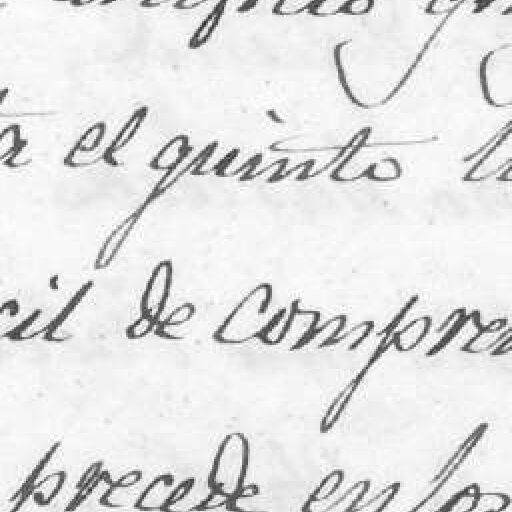 el quinto
cil de compren
precede en los